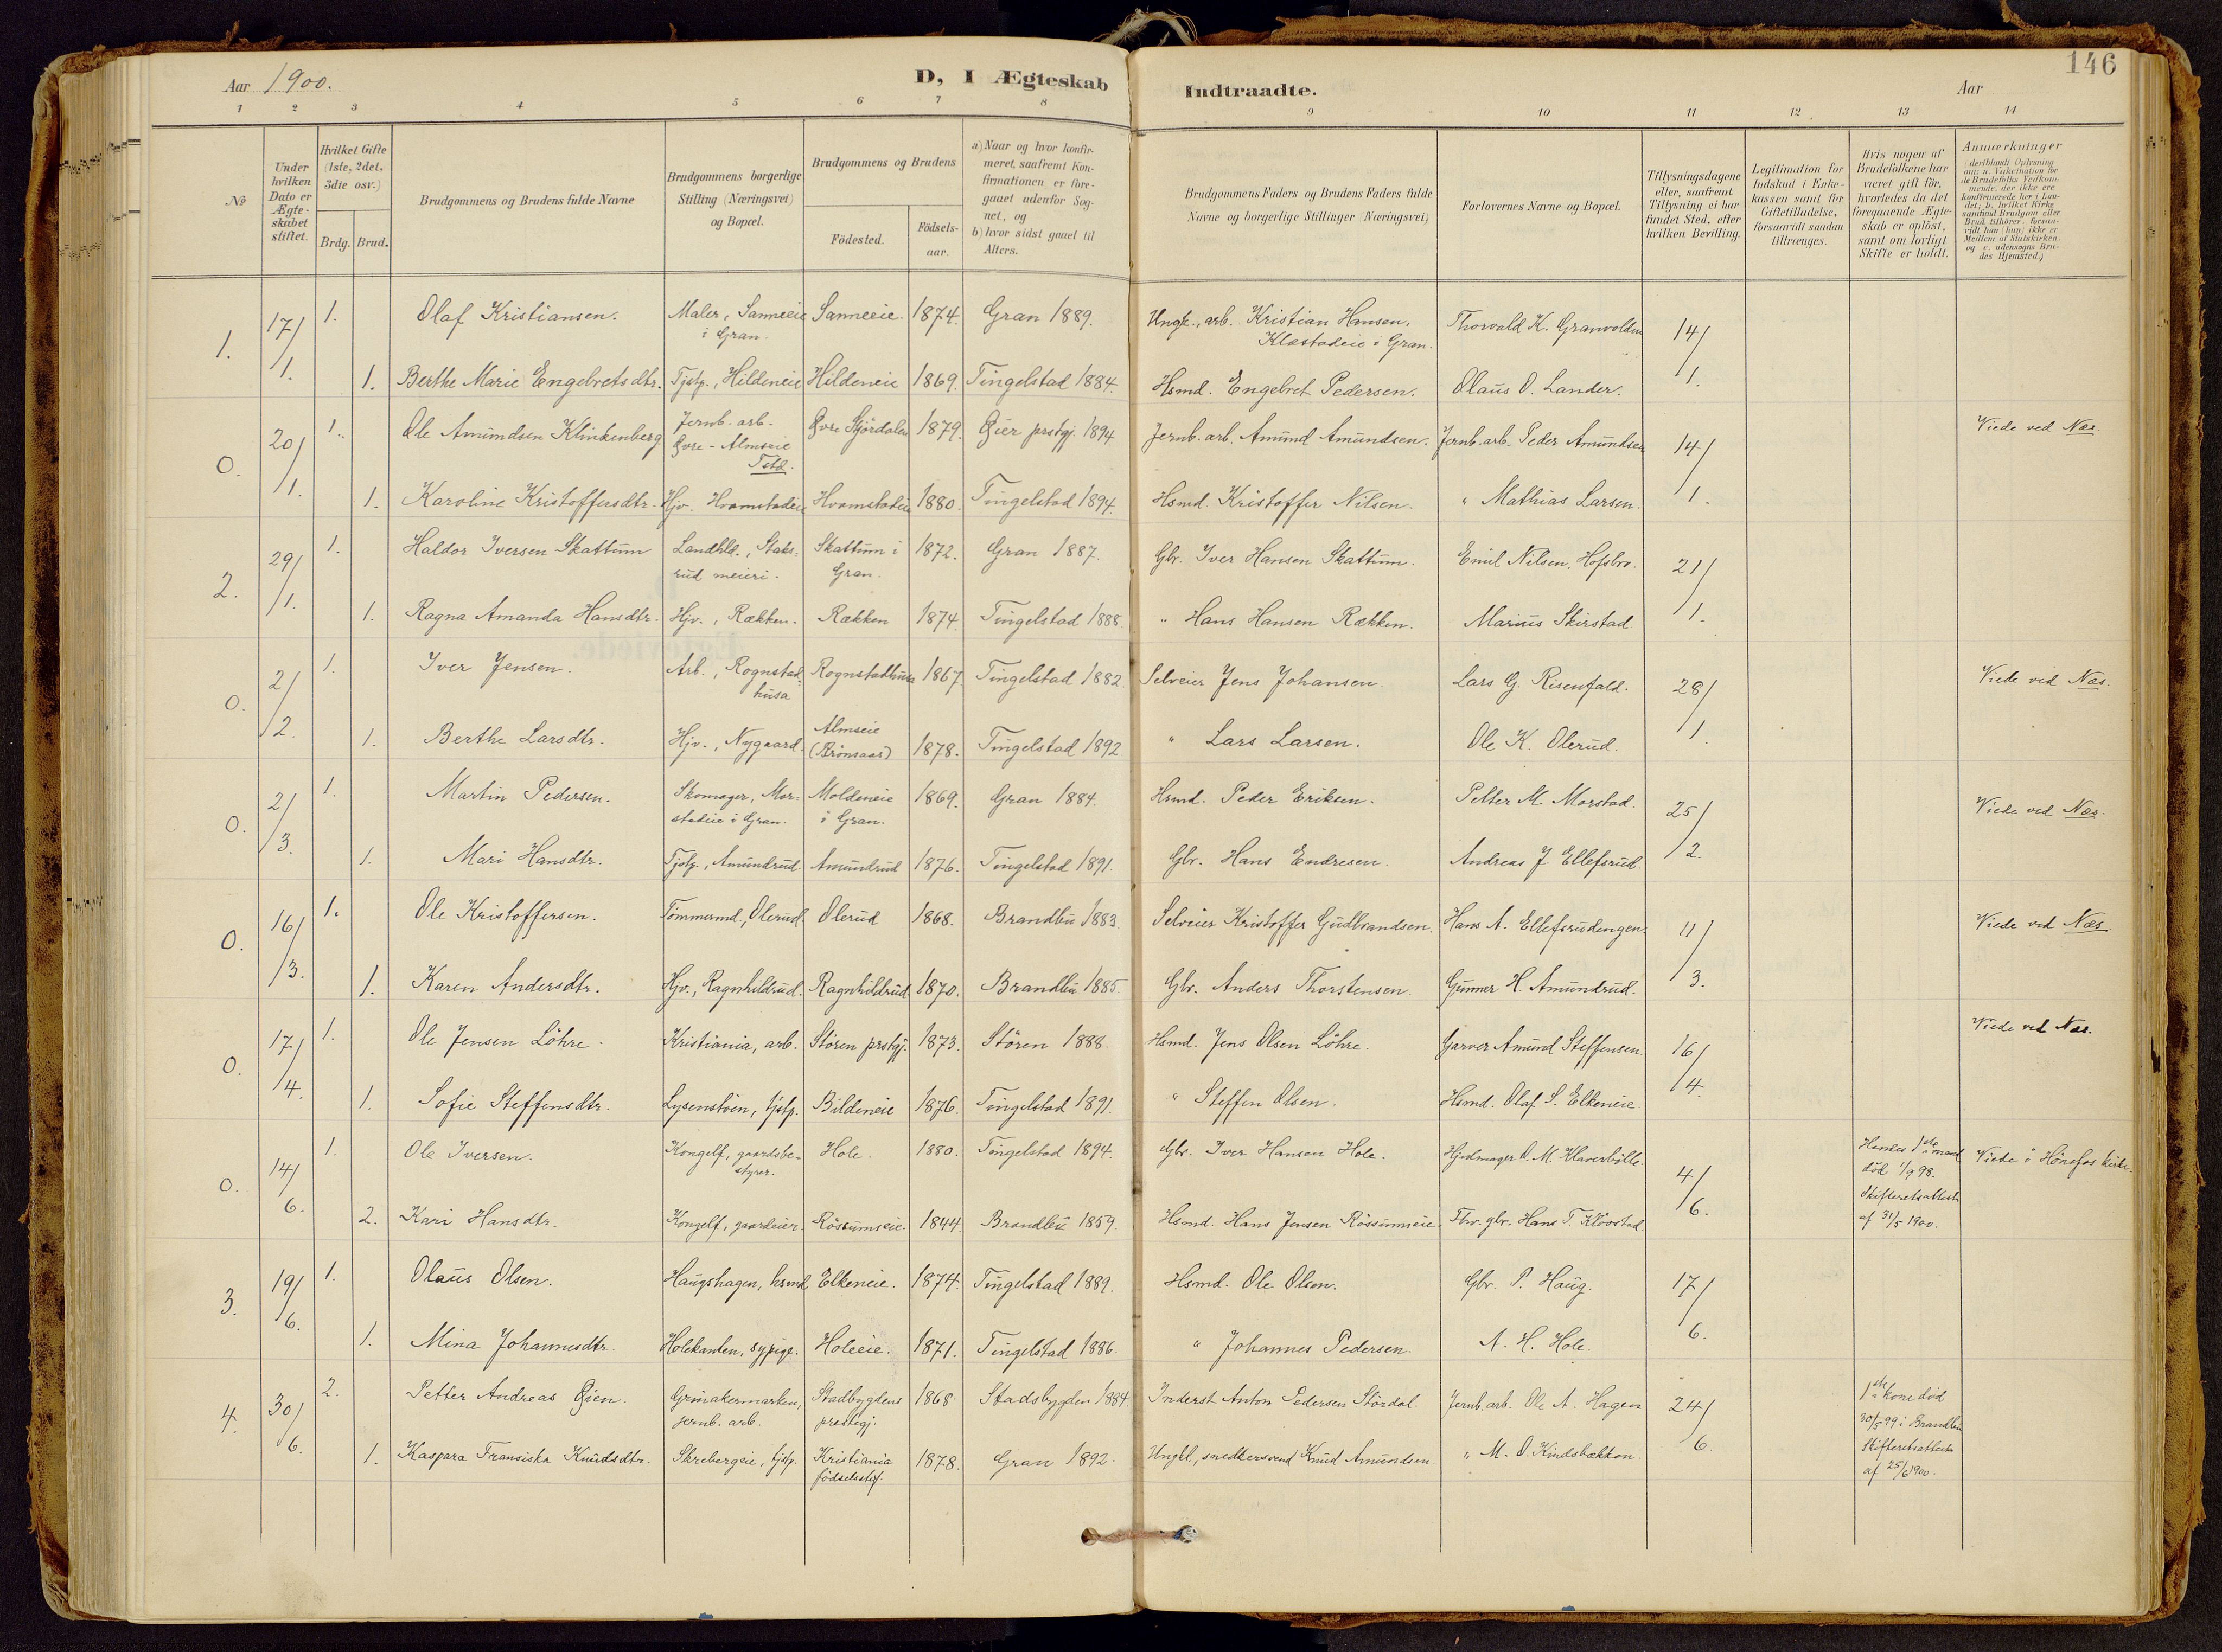 Aar 1900.
D, I Ægteskab Indtraadte.
Aar
146
1 2 3 4 5 6 7 8 9 10 11 12 13 14
№
Under hvilken Dato er Ægte-skabet stiftet.
Hvilket Gifte (1ste, 2det, 3die osv.)
Brdg. Brud.
Brudgommens og Brudens fulde Navne
Brudgommens borgerlige Stilling (Næringsvei) og Bopæl.
Brudgommens og Brudens
Födested.
Födsels-aar.
a) Naar og hvor konfir-meret, saafremt Kon-firmationen er fore-gaaet udenfor Sog-net, og
b) hvor sidst gaaet til Alters.
Brudgommens Faders og Brudens Faders fulde Navne og borgerlige Stillinger (Næringsvei)
Forlovernes Navne og Bopæl.
Tillysningsdagene eller, saafremt Tillysning ei har fundet Sted, efter hvilken Bevilling.
Legitimation for Indskud i Enke-kassen samt for Giftetilladelse, forsaavidt saadan tiltrænges.
Hvis nogen af Brudefolkene har været gift för, hvorledes da det foregaaende Ægte-skab er oplöst, samt om lovligt Skifte er holdt.
Anmærkninger (deriblandt Oplysning om: a. Vakcination for de Brudefolks Vedkom-mende, der ikke ere konfirmerede her i Lan-det; b. hvilket Kirke-samfund Brudgom eller Brud tilhörer, forsaa-vidt han (hun) ikke er Medlem af Statskirken, og c. udensogns Bru-des Hjemsted.)
1. 17/1. 1. Olaf Kristiansen. Maler, Sanneeie i Gran. Sanneeie. 1874. Gran 1889. Ungk., arb. Kristian Hansen, Klæstadeie i Gran. Thorvald K. Granvolden 14/1.
1. Berthe Marie Engebretsdtr. Tjstp., Hildeneie Hildeneie 1869. Tingelstad 1884. Hsmd. Engebret Pedersen. Olaus O. Lander.
0. 20/1. 1. Ole Amundsen Klinkenberg Jernb. arb. Øvre-Almseie Tstd. Øvre Stjördalen 1879. Øier prstgj. 1894 Jernb. arb. Amund Amundsen. Jernb. arb. Peder Amundsen 14/1. Viede ved Næs
1. Karoline Kristoffersdtr. Hjv. Hvamstadeie Hvamstadeie 1880. Tingelstad 1894. Hsmd. Kristoffer Nilsen. " Mathias Larsen.
2. 29/1. 1. Haldor Iversen Skattum Landhld., Staks-rud meieri. Skattum i Gran. 1872. Gran 1887. Gbr. Iver Hansen Skattum. Emil Nilsen, Hofsbro. 21/1.
1. Ragna Amanda Hansdtr. Hjv., Rækken. Rækken 1874. Tingelstad 1888. " Hans Hansen Rækken. Marius Skirstad
0. 2/2. 1. Iver Jensen. Arb., Rognstad-husa Rognstadhusa 1867. Tingelstad 1882. Selveier Jens Johansen. Lars G. Risenfald. 28/1. Viede ved Næs.
1. Berthe Larsdtr. Hjv., Nygaard. Almseie (Brönsaas) 1878. Tingelstad 1892. " Lars Larsen. Ole K. Olerud.
0. 2/3. 1. Martin Pedersen. Skomager, Mor-stadeie i Gran. Moldeneie i Gran. 1869. Gran 1884. Hsmd. Peder Eriksen. Petter M. Morstad. 25/2. Viede ved Næs.
1. Mari Hansdtr. Tjstp., Amundrud. Amundrud 1876. Tingelstad 1891. Gbr. Hans Endresen. Andreas J. Ellefsrud.
0. 16/3. 1. Ole Kristoffersen. Tömmermd., Olerud. Olerud 1868. Brandbu 1883. Selveier Kristoffer Gudbrandsen. Hans A. Ellefsrudengen. 11/3. Viede ved Næs
1. Karen Andersdtr. Hjv., Ragnhildrud. Ragnhildrud 1870. Brandbu 1885. Gbr. Anders Thorstensen. Gunner H. Amundrud.
0. 17/4. 1. Ole Jensen Löhre. Kristiania, arb. Stören prstgj. 1873. Stören 1888. Hsmd. Jens Olsen Löhre. Garver Amund Steffensen. 16/4. Viede ved Næs.
1. Sofie Steffensdtr. Lysenstöen, tjstp. Bildeneie 1876. Tingelstad 1891. " Steffen Olsen. Hsmd. Olaf S. Elkeneie.
0. 14/6. 1. Ole Iversen. Kongelf, gaardsbe-styrer. Hole. 1880. Tingelstad 1894. Gbr. Iver Hansen Hole. Hjulmager O. M. Klaverbölle. 4/6. Hendes 1ste mand död 1/9 98. Skifteretsattest af 31/5 1900. Viede i Hönefos kirke.
2. Kari Hansdtr. Kongelf, gaardeier. Rössumseie. 1844. Brandbu 1859. Hsmd. Hans Jensen Rössumseie. Fhv. gbr. Hans T. Klövstad.
3. 19/6. 1. Olaus Olsen. Haugshagen, hsmd. Elkeneie. 1874. Tingelstad 1889. Hsmd. Ole Olsen. Gbr. P. Haug. 17/6.
1. Mina Johannesdtr. Holekanten, sypige. Holeeie. 1871. Tingelstad 1886. " Johannes Pedersen. A. H. Hole.
4. 30/6. 2. Petter Andreas Öien. Grinakermarken, jernb. arb. Stadbygdens prestegj. 1868. Stadsbygden 1884. Inderst Anton Pedersen Stördal. Jernb. arb. Ole A. Hagen 24/6. 1ste kone död 30/5 99 i Brandbu Skifteretsattest af 25/6 1900.
1. Kaspara Fransiska Knudsdtr. Skrebergeie, tjstp. Kristiania födselsstif. 1878. Gran 1892. Ungkl., snedkersvend Knud Amundsen " M. O. Kindsbækken.